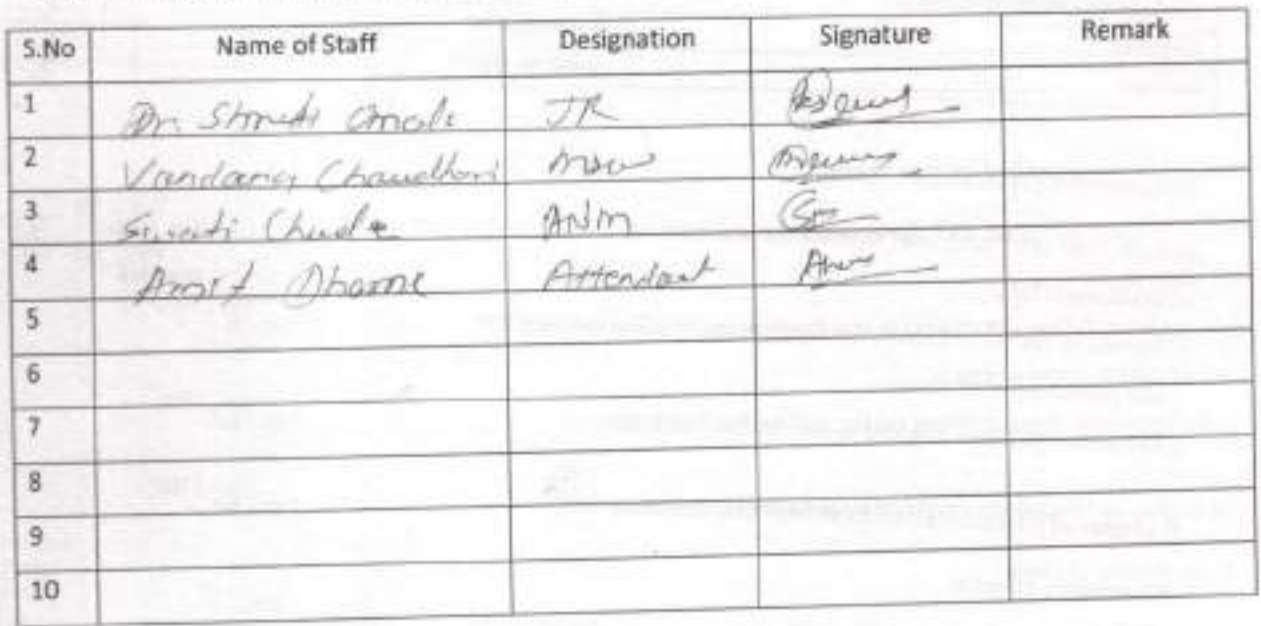 S.No Name of Staff Designation Signature Remark
1 Dr. JR
2 Vandana Chaudhari MSW
3 ANM
4 Amit Dhorne Attendant
5
6
7
8
9
10